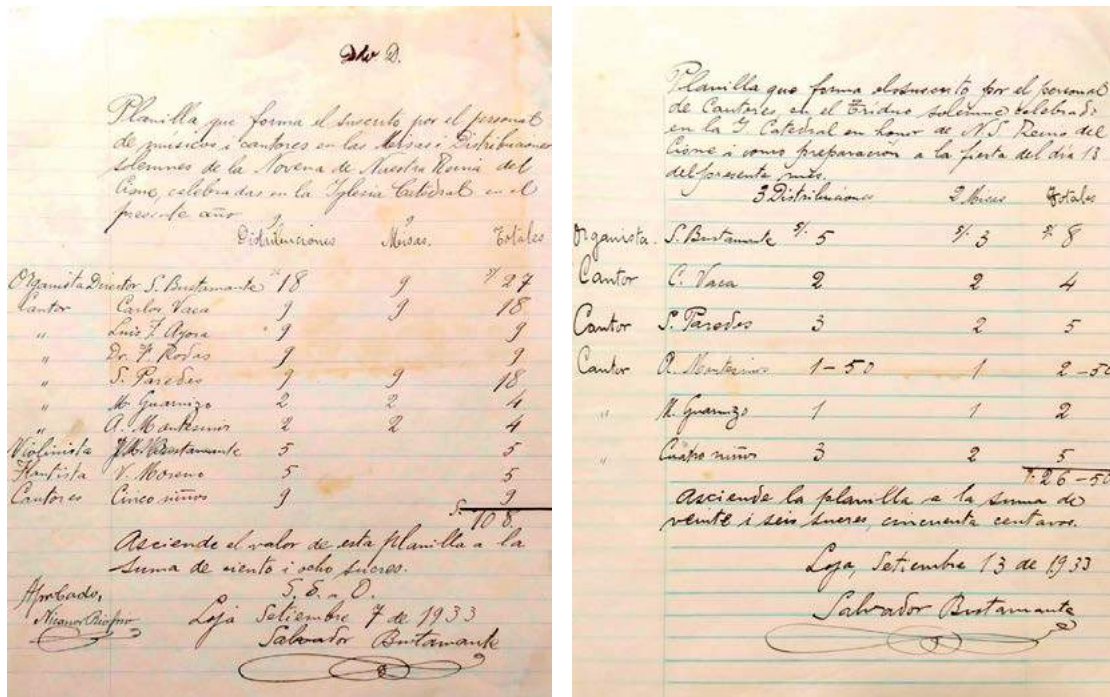 D.
Planilla que forma el suscrito por el personal
de músicos i cantores en las Misas i Distribuciones
solemnes de la Novena de Nuestra Reina del
Cisne, celebradas en la Iglesia Catedral en el
presente año.
9 9
Distribuciones Misas. Totales
Organista Director S. Bustamante 18 9 S/ 27
Cantor Carlos Vaca 9 9 18
" Luis F. Ayora 9 9
" Dr. F. Rodas 9 9
" S. Paredes 9 9 18
" M. Guarnizo 2 2 4
" A. Montesinos 2 2 4
Violinista Bustamante 5 5
Flautista V. Moreno 5 5
Cantores Cinco niños 9 9
S. 108
Asciende el valor de esta planilla a la
suma de ciento i ocho sucres.
S. E. u O.
Aprobado,
Nicanor Riofrío
Loja Setiembre 7 de 1933
Salvador Bustamante
Planilla que forma el suscrito por el personal
de Cantores, en el Triduo solemne celebrado
en la I. Catedral en honor de N. S. Reina del
Cisne i como preparación a la fiesta del día 13
del presente mes.
3 Distribuciones 2 Misas Totales
Organista. S. Bustamante S/. 5 S/. 3 S/ 8
Cantor C. Vaca 2 2 4
Cantor S. Paredes 3 2 5
Cantor A. Montesinos 1-50 1 2-50
" M. Guarnizo 1 1 2
" Cuatro niños 3 2 5
S. 26-50
Asciende la planilla a la suma de
veinte i seis sucres, cincuenta centavos.
Loja, Setiembre 13 de 1933
Salvador Bustamante